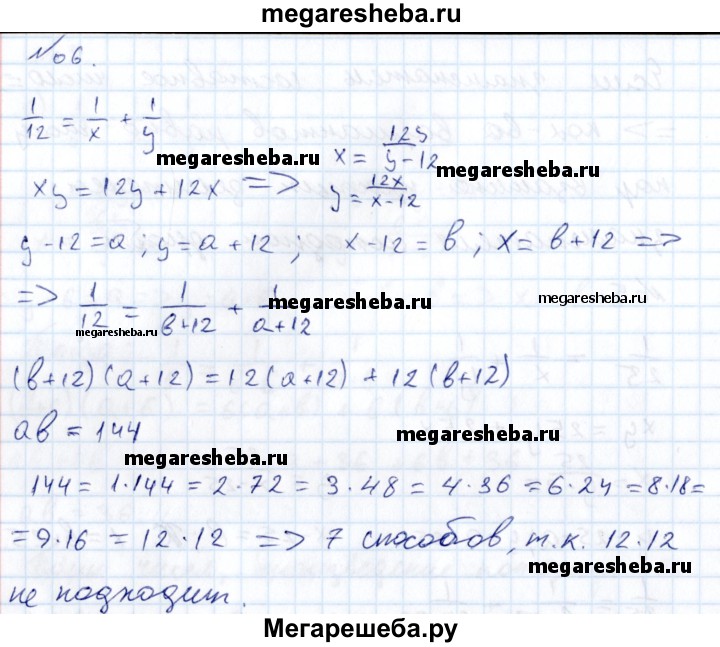 megaresheba.ru
№06.
1/12 = 1/x + 1/y
megaresheba.ru
x = 12y/(y-12)
megaresheba.ru
xy = 12y + 12x => y = 12x/(x-12)
y-12 = a; y = a+12; x-12 = b; x = b+12 =>
=> 1/12 = 1/(b+12) + 1/(a+12)
megaresheba.ru
megaresheba.ru
megaresheba.ru
(b+12)(a+12) = 12(a+12) + 12(b+12)
ab = 144
megaresheba.ru
megaresheba.ru
144 = 1·144 = 2·72 = 3·48 = 4·36 = 6·24 = 8·18 =
= 9·16 = 12·12 => 7 способов, т.к. 12·12
megaresheba.ru
не подходит.
Мегарешеба.ру